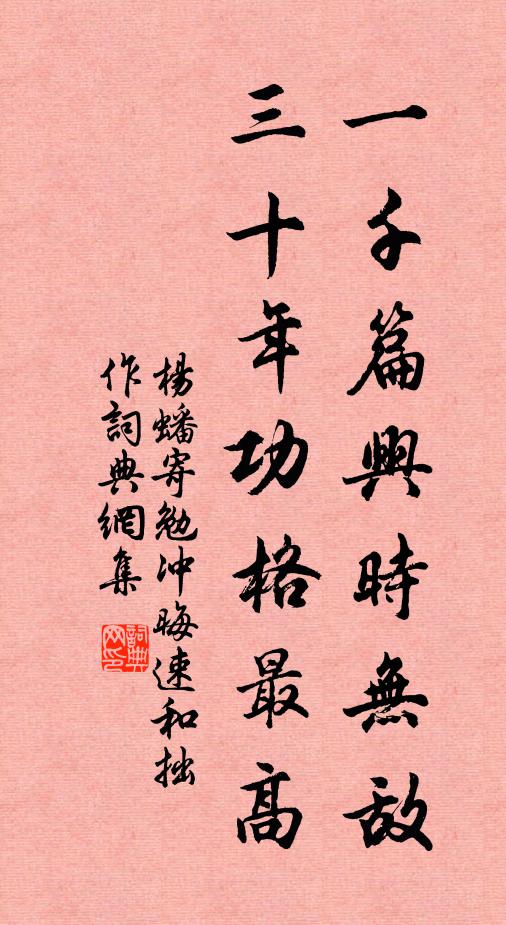 一千篇興時無敵
三十年功格最高
楊蟠寄勉冲晦速和拙
作詞典網集
詞典网印